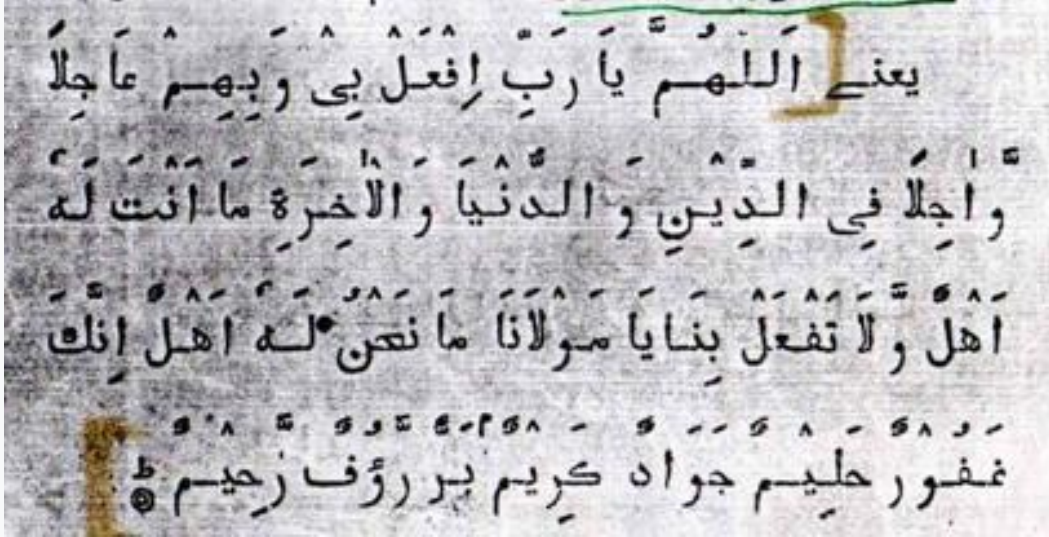 يعنے اَللّٰهُمَّ يَا رَبِّ اِفْعَلْ بِىْ وَبِهِمْ عَاجِلًا
وَّاٰجِلًا فِى الدِّيْنِ وَ الدُّنْيَا وَ الْاٰخِرَةِ مَا اَنْتَ لَهٗ
اَهْلٌ وَّلَا تَفْعَلْ بِنَا يَا مَوْلَانَا مَا نَحْنُ لَهٗ اَهْلٌ اِنَّكَ
غَفُوْرٌ حَلِيْمٌ جَوَادٌ كَرِيْمٌ بَرٌّ رَؤُفٌ رَّحِيْمٌ ط